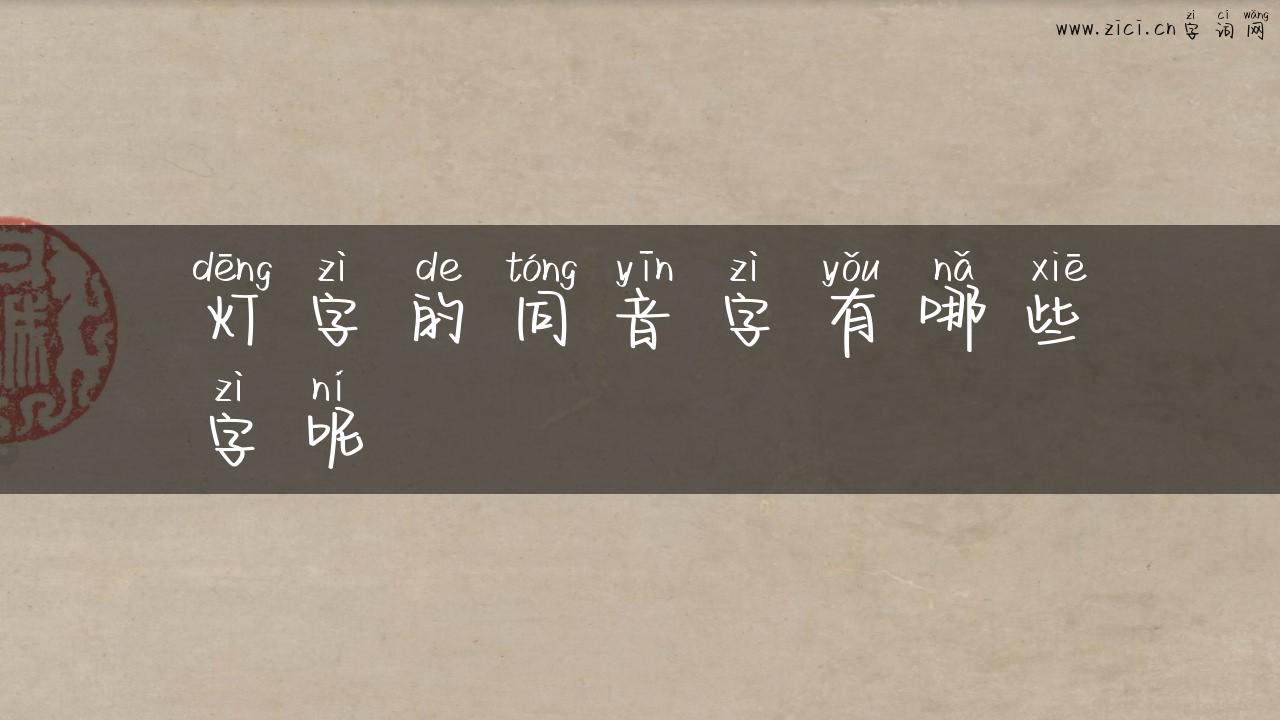 zì cí wǎng
www.zici.cn 字词网
dēng zì de tóng yīn zì yǒu nǎ xiē
灯字的同音字有哪些
zì ní
字呢